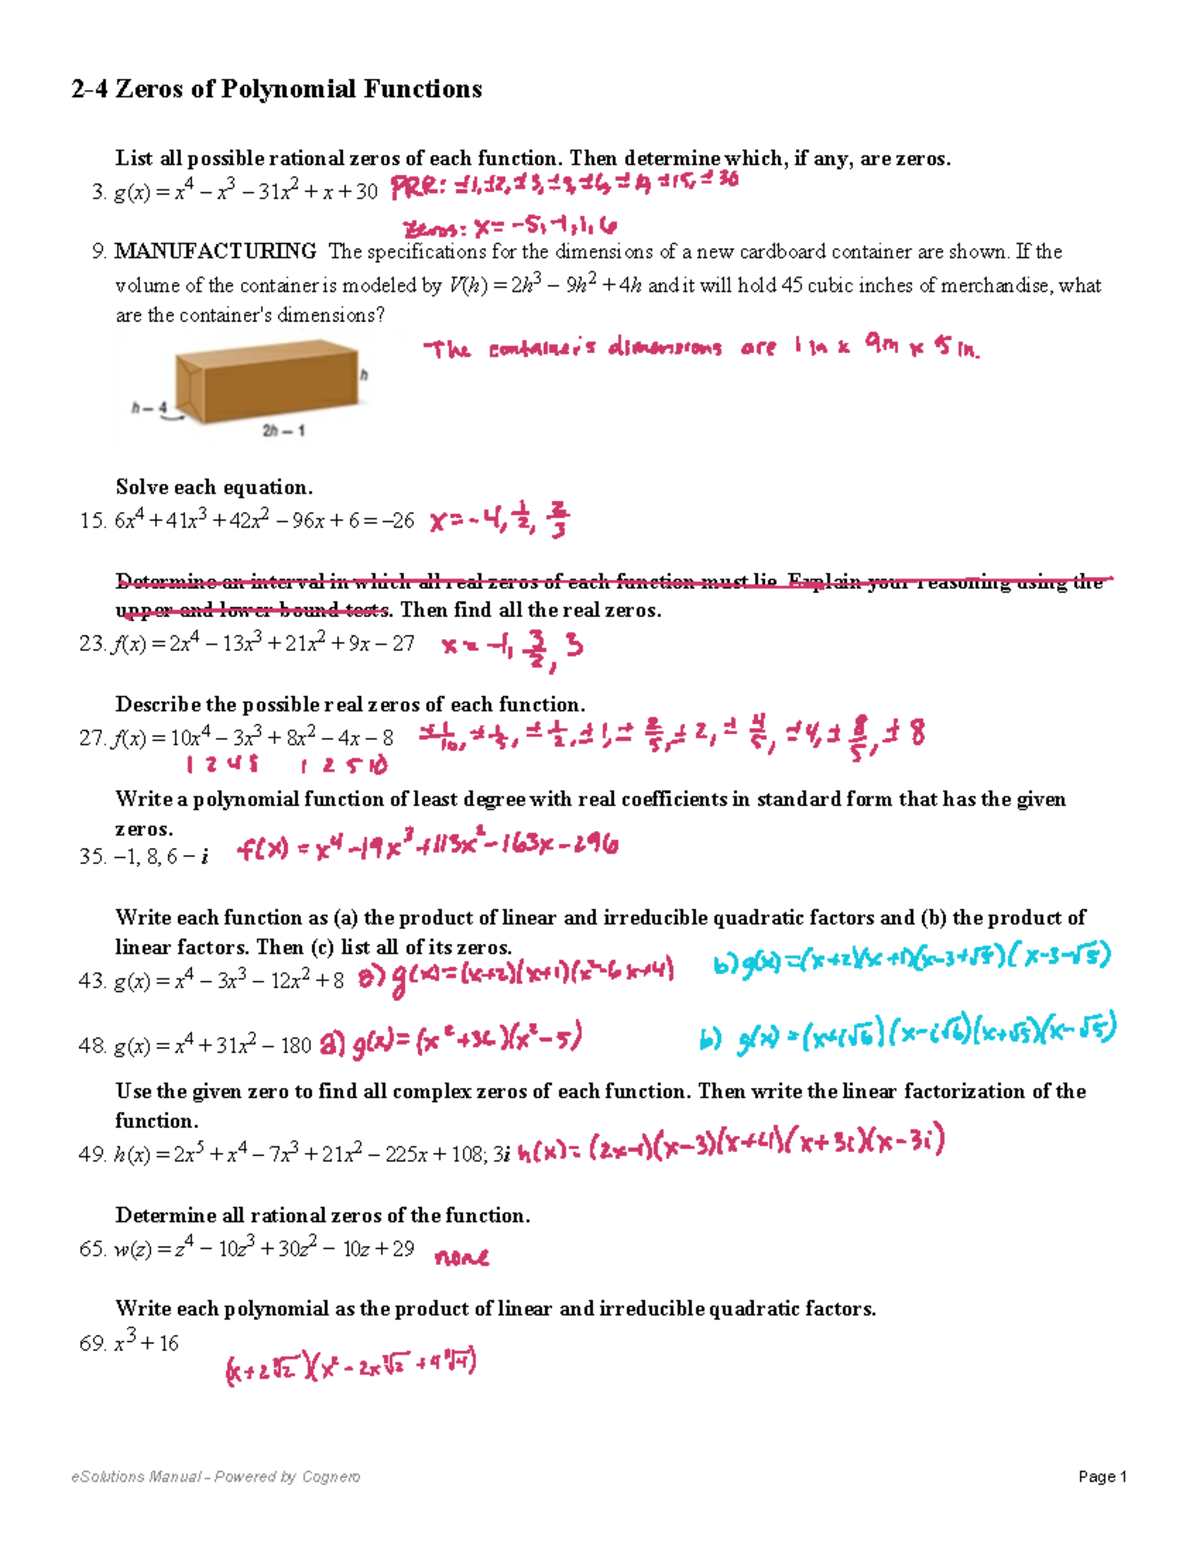 2-4 Zeros of Polynomial Functions
List all possible rational zeros of each function. Then determine which, if any, are zeros.
3. g(x) = x⁴ – x³ – 31x² + x + 30 PRR: ±1, ±2, ±3, ±5, ±6, ±10, ±15, ±30
Zeros: x = -5, -1, 1, 6
9. MANUFACTURING The specifications for the dimensions of a new cardboard container are shown. If the
volume of the container is modeled by V(h) = 2h³ – 9h² + 4h and it will hold 45 cubic inches of merchandise, what
are the container's dimensions?
The container's dimensions are 1 in x 9in x 5 in.
h
h – 4
2h – 1
Solve each equation.
15. 6x⁴ + 41x³ + 42x² – 96x + 6 = –26 x = -4, 1/2, 2/3
Determine an interval in which all real zeros of each function must lie. Explain your reasoning using the
upper and lower bound tests. Then find all the real zeros.
23. f(x) = 2x⁴ – 13x³ + 21x² + 9x – 27 x = -1, 3/2, 3
Describe the possible real zeros of each function.
27. f(x) = 10x⁴ – 3x³ + 8x² – 4x – 8 ±1/10, ±1/5, ±1/2, ±1, ±2/5, ±2, ±4/5, ±4, ±8/5, ±8
1 2 4 8 1 2 5 10
Write a polynomial function of least degree with real coefficients in standard form that has the given
zeros.
35. –1, 8, 6 – i f(x) = x⁴ -19x³ +113x² -163x -296
Write each function as (a) the product of linear and irreducible quadratic factors and (b) the product of
linear factors. Then (c) list all of its zeros.
43. g(x) = x⁴ – 3x³ – 12x² + 8 a) g(x) = (x+2)(x+1)(x²-6x+4) b) g(x) = (x+2)(x+1)(x-3+√5)(x-3-√5)
48. g(x) = x⁴ + 31x² – 180 a) g(x) = (x²+36)(x²-5) b) g(x) = (x+i√6)(x-i√6)(x+√5)(x-√5)
Use the given zero to find all complex zeros of each function. Then write the linear factorization of the
function.
49. h(x) = 2x⁵ + x⁴ – 7x³ + 21x² – 225x + 108; 3i h(x) = (2x-1)(x-3)(x+4)(x+3i)(x-3i)
Determine all rational zeros of the function.
65. w(z) = z⁴ – 10z³ + 30z² – 10z + 29 none
Write each polynomial as the product of linear and irreducible quadratic factors.
69. x³ + 16
(x+2∛2)(x²-2x∛2+4∛4)
eSolutions Manual - Powered by Cognero Page 1